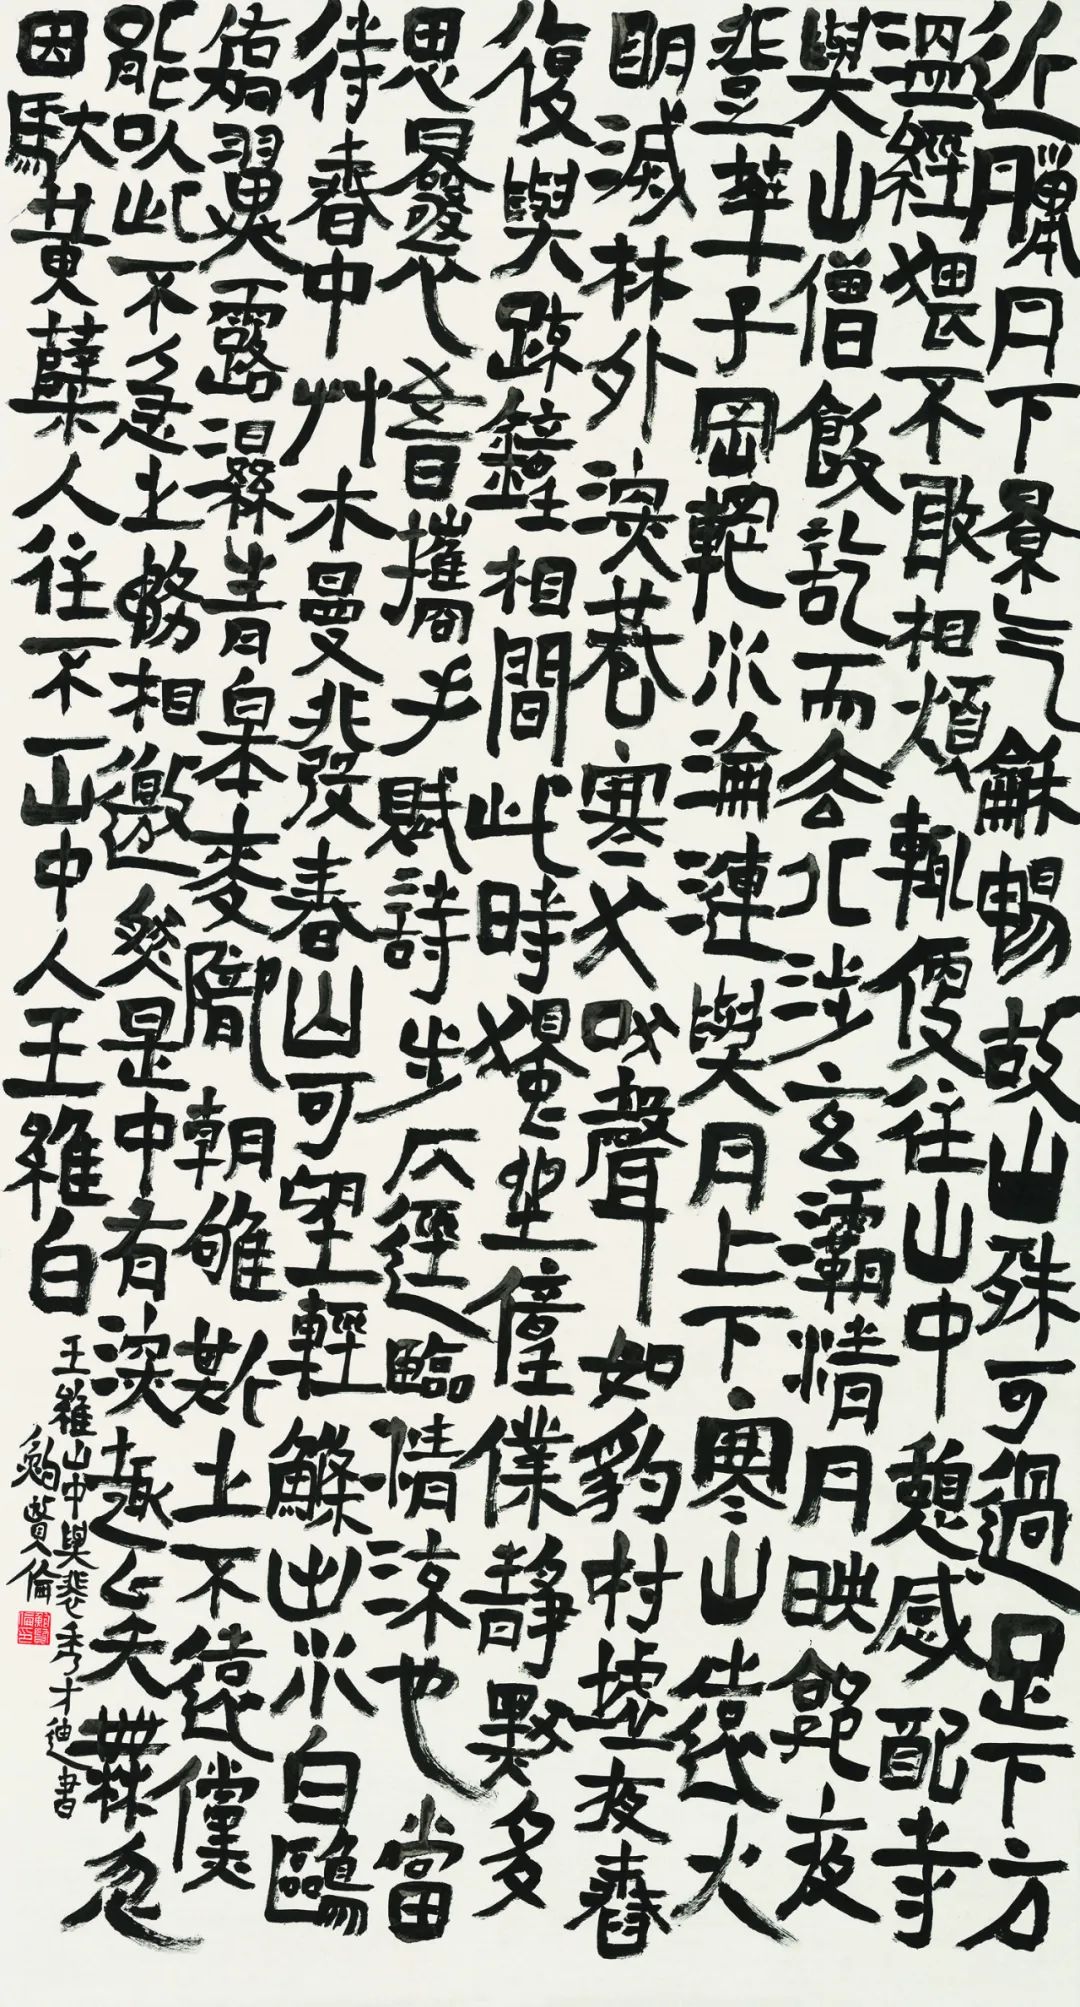 近臘月下景气龢暢故山殊可過足下方
溫經猥不敢相煩輒便往山中憩感配寺
與山僧飯訖而去北涉玄灞清月映郭夜
登華子岡輞水淪漣與月上下寒山遠火
明滅林外深巷寒犬吠聲如豹村墟夜舂
復與疎鐘相間此時獨坐僮僕靜默多
思曩昔攜手賦詩步仄逕臨清流也當
待春中艸木曼發春山可望輕鯈出水白鷗
矯翼露濕青皋麥隴朝雊斯之不遠儻
能以此不急之務相邀然是中有深趣矣無忽
因馱黃蘗人往不一山中人王維白
王維山中與裴秀才迪書
賢倫